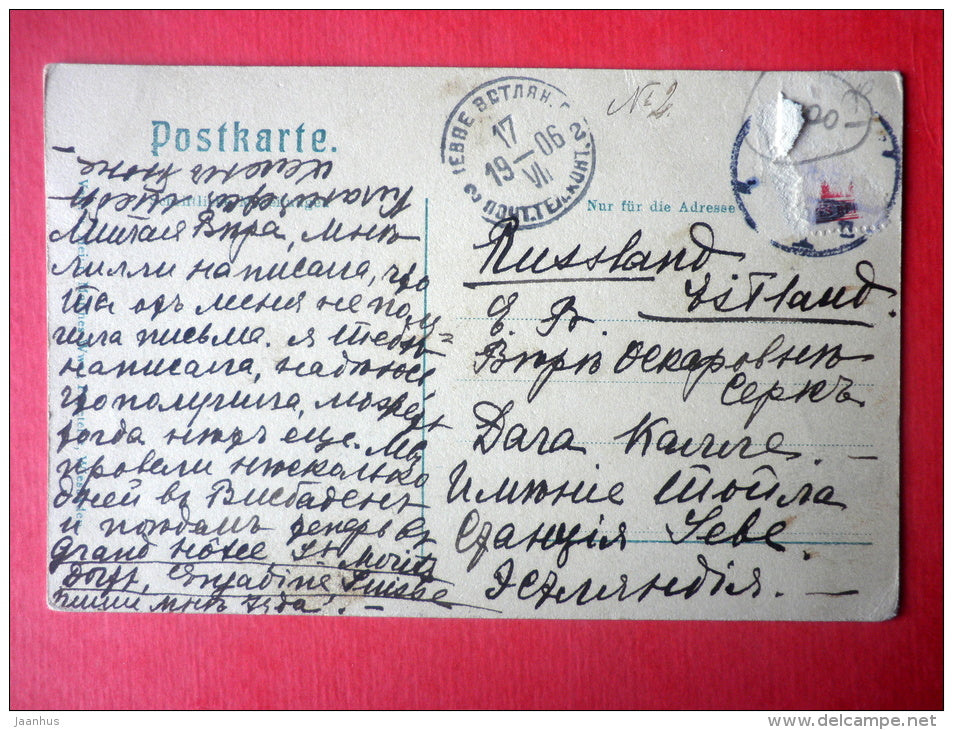 № 2
Postkarte.
ІЕВВЕ ЭСТЛЯН.
17
VII
19—06
ПОЧТ.ТЕЛ.КОНТ.
Nur für die Adresse
Милая Вѣра, мнѣ
Лилли написала, что
ты отъ меня не полу-
чила письма. Я тебѣ
написала, надѣюсь
что получила, можетъ
тогда нѣтъ еще. Мы
провели нѣсколько
дней въ Висбаденѣ
и поѣдемъ теперь въ
Grand Hôtel, St. Moritz
Dorf, Engadine, Suisse
пиши мнѣ туда! —
Russland
Estland.
Е. В.
Вѣрѣ Оскаровнѣ
Серкъ.
Дача Калле. —
Имѣніе Тойла
Станція Jeve.
Эстляндія. —
Jaanhus
www.delcampe.net